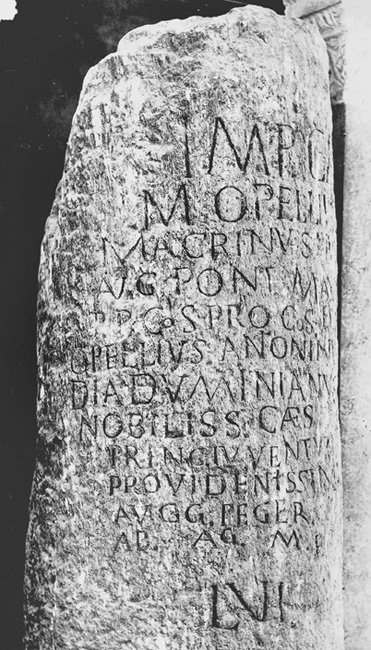 IMP C
M OPELLI
MACRINVS P
AVG PONT MA
P P COS PROCOS E
OPELLIVS ANONIN
DIADVMINIANV
NOBILISS CAES
PRINC IVVENTV
PROVIDENISSIM
AVGG FEGER
AB AQ M P
LVI